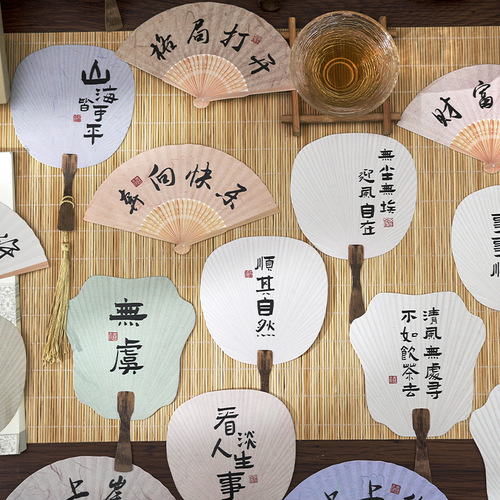 格局打开
山海皆可平
财富
奔向快乐
無尘無埃
迎風自在
事事順
順其自然
無虞
清風無處尋
不如飲茶去
看淡人生事